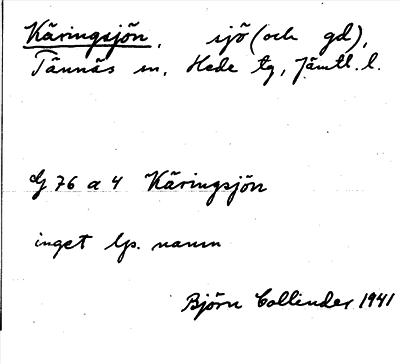 Käringsjön, sjö (och gd),
Tännäs sn, Hede tg, Jämtl. l.
G 76 a 4 Käringsjön
inget lps. namn
Björn Collinder 1941